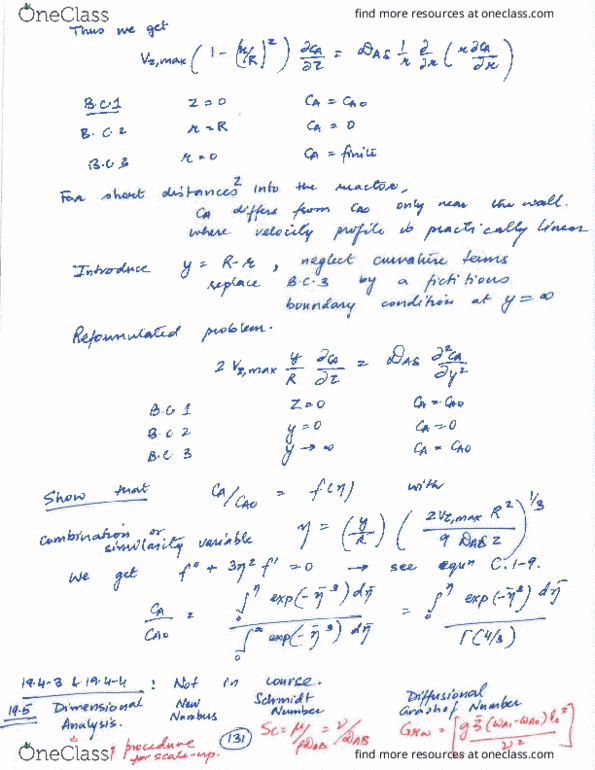 OneClass
find more resources at oneclass.com
Thus we get
Vz,max (1 - (r/R)²) ∂CA/∂z = DAB 1/r ∂/∂r (r ∂CA/∂r)
B.C.1 z = 0 CA = CA0
B.C.2 r = R CA = 0
B.C.3 r = 0 CA = finite
For short distances z into the reactor,
CA differs from CA0 only near the wall.
where velocity profile is practically linear
Introduce y = R-r, neglect curvature terms
replace B.C.3 by a fictitious
boundary condition at y = ∞
Reformulated problem.
2 Vz,max y/R ∂CA/∂z = DAB ∂²CA/∂y²
B.C 1 z = 0 CA = CA0
B.C 2 y = 0 CA = 0
B.C. 3 y → ∞ CA = CA0
Show that CA/CA0 = f(η) with
combination or similarity variable η = (y/R) (2Vz,max R²/9 DAB z)^1/3
We get f" + 3η² f' = 0 → see eqn C.1-9.
CA/CA0 = ∫₀^η exp(-η̄³) dη̄ / ∫₀^∞ exp(-η̄³) dη̄ = ∫₀^η exp(-η̄³) dη̄ / Γ(4/3)
19.4-3 & 19.4-4 : Not in course.
19.5 Dimensional Analysis. New Numbers Schmidt Number Diffusional Grashof Number
procedure for scale-up. (131) Sc = μ/ρDAB = ν/DAB Grw = [g ξ̄ (ωA1-ωA0) l0³/ν²]
OneClass
find more resources at oneclass.com